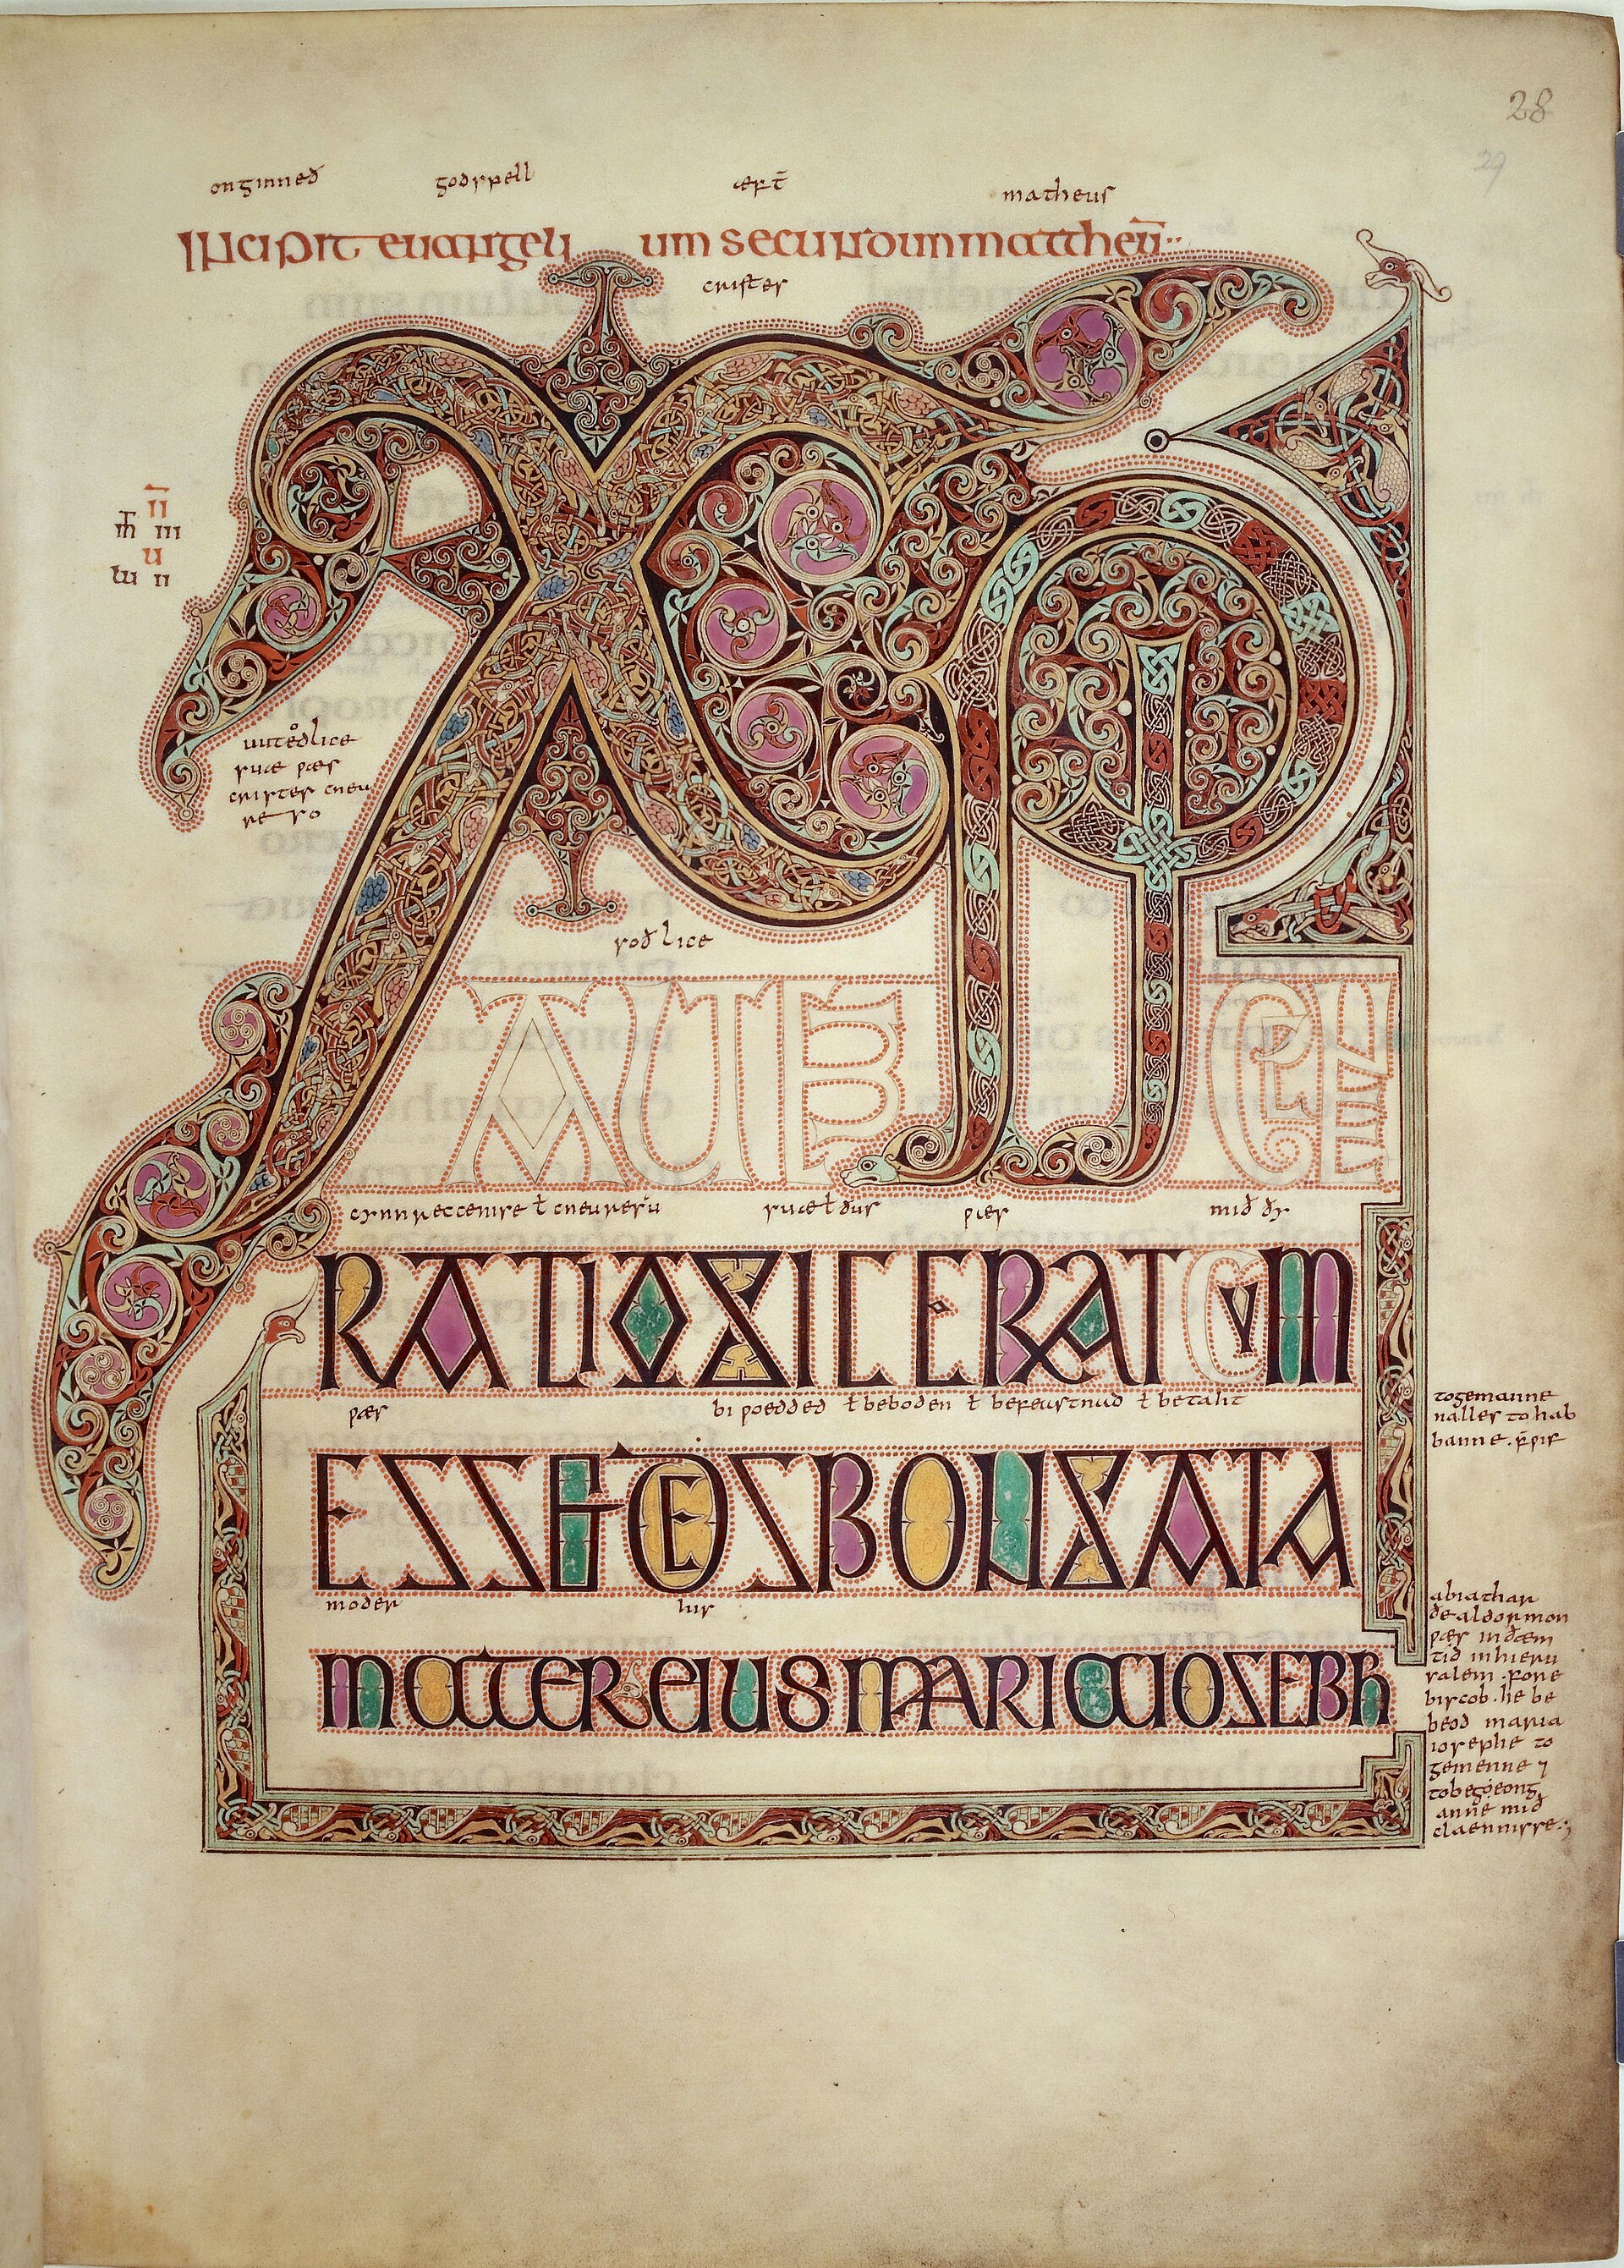 28
29
onginneð godspell æft̄ matheus
incipit evangeli um secundum mattheū
cristes
īī
m̄ iii
u
lu ii
uutedlice
suæ wæs
cristes cneu
reso
soðlice
XPI AUTEM GE
cynnreccenise ł cneuresū suæ ł ðus wæs mið ðy
NERATIO SIC ERAT CUM
wæs bi woedded ł beboden ł befeastnad ł betaht
ESSET DESPONSATA
moder his
MATER EIUS MARIA IOSEPH
togemanne
nalles to hab
banne
abiathar
ðe aldormon
wæs in ðæm
tid in hieru
salem
biscob · he be
beod maria
iosephe to
gemenne ⁊
to begeong
anne mið
claennisse